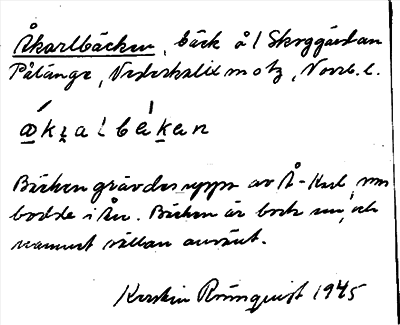 Åkarlbäcken, bäck å l Skoggårdan
Pålänge, Nederkalix motz, Norrb. l.
åkzalbäkan
Bäcken grävdes upp av Å-Karl, som
bodde i Ån. Bäcken är bort nu, och
namnet sällan använt.
Kerstin Rönnquist 1945